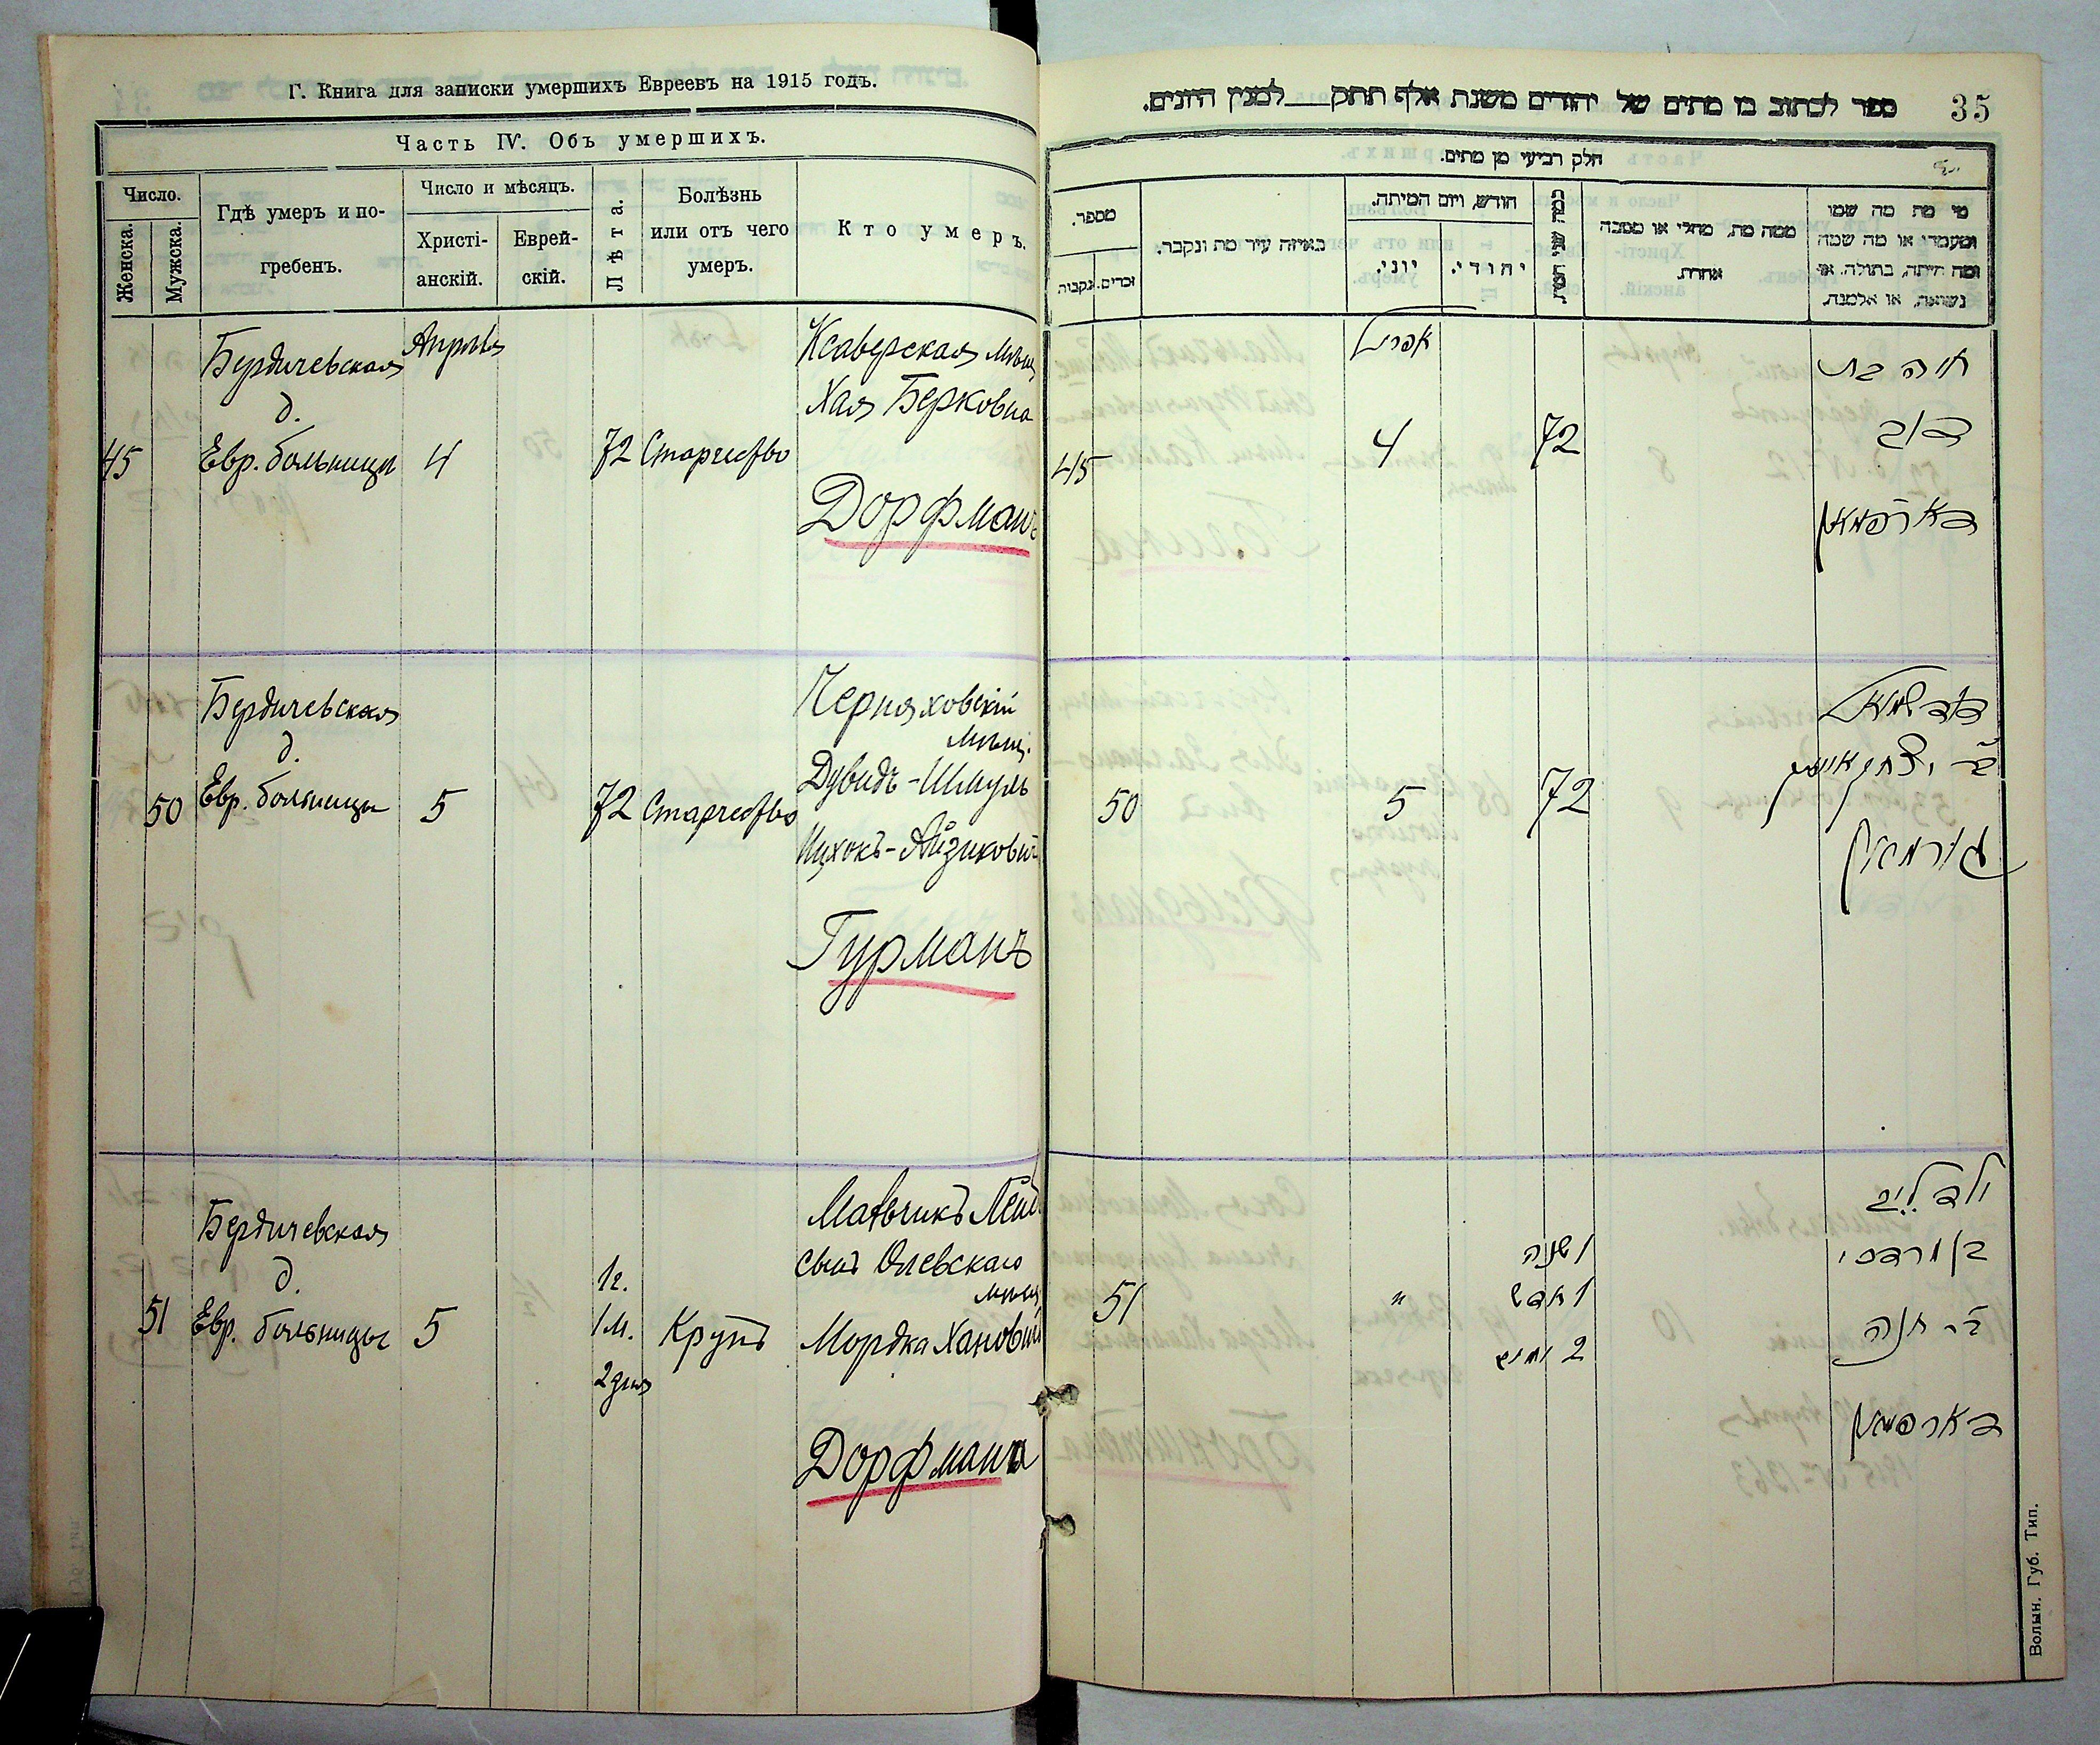 Г. Книга для записки умершихъ Евреевъ на 1915 годъ.
Часть IV. Объ умершихъ.
Число.
Женска.
Мужска.
Гдѣ умеръ и по-
гребенъ.
Число и мѣсяцъ.
Христі-
анскій.
Еврей-
скій.
Лѣта.
Болѣзнь
или отъ чего
умеръ.
Кто умеръ.
Бердичевская
д.
Евр. больницы
45
Апрѣля
4
72
Старчество
Ксаверская мѣщ
Хая Берковна
Дорфманъ
Бердичевская
д.
Евр. больницы
50
5
72
Старчество
Черняховскій
мѣщ.
Дувидъ-Шмуль
Ицхокъ-Айзикович
Гурманъ
Бердичевская
д.
Евр. больницы
51
5
1 г.
1 м.
2 дня
Крупъ
Мальчикъ Лейб
сынъ Олевскаго
мѣщ
Мордка Хановича
Дорфмана
35
ספר לכתוב בו מתים של יהודים משנת אלף תתק___למנין היונים.
חלק רביעי מן מתים.
מספר.
נקבות
זכרים.
באיזה עיר מת ונקבר.
חודש, ויום המיתה.
יוני.
יהודי.
כמה שני המת
ממה מת, מחלי או מסבה
אחרת.
מי מת מה שמו
ומעמדו או מה שמה
ומה היתה, בתולה, או
נשואה, או אלמנה.
45
אפריל
4
72
חיה בת
דוב
דארפמאן
50
5
72
דוד שמואל
בר יצחק אייזיק
גורמאן
51
"
1 שנה
1 חדש
2 ימים
ילד ליב
בן מרדכי
בר חנה
דארפמאן
Волын. Губ. Тип.